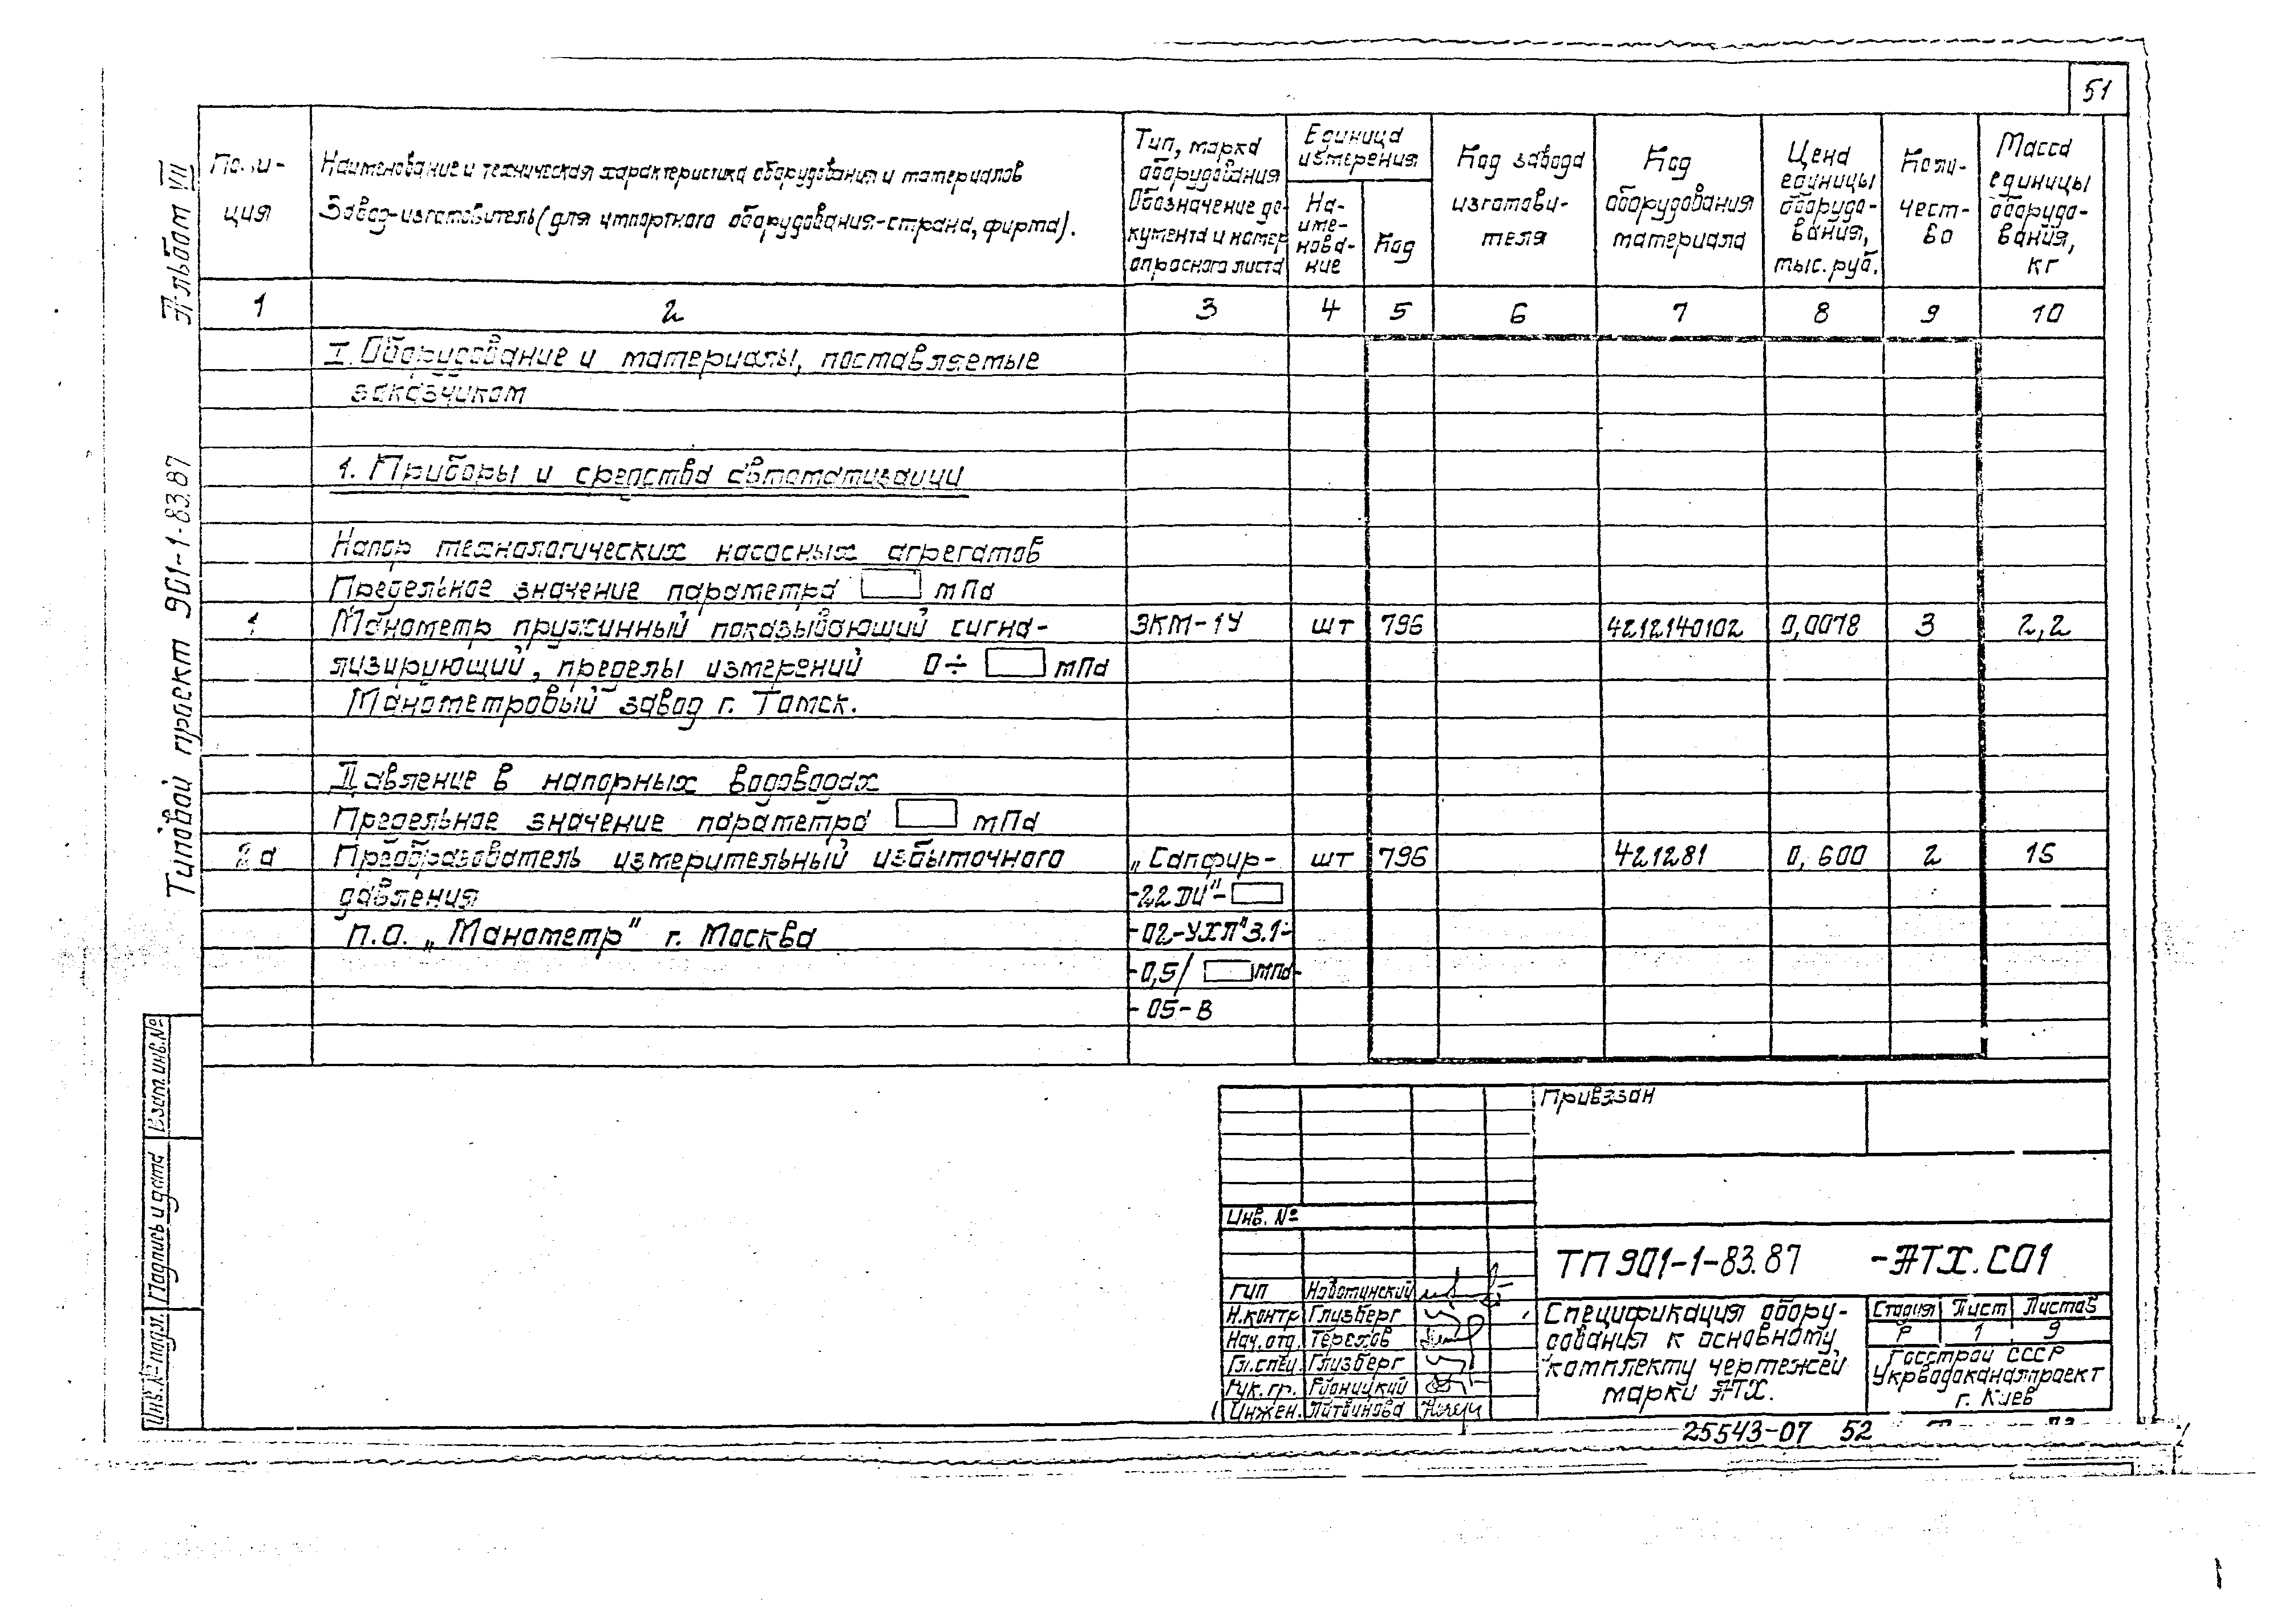 51
Альбом VII
Типовой проект 901-1-83.87
Пози-
ция
Наименование и техническая характеристика оборудования и материалов
Завод-изготовитель (для импортного оборудования-страна, фирма).
Тип, марка
оборудования
Обозначение до-
кумента и номер
опросного листа
Единица
измерения
На-
име-
нова-
ние
Код
Код завода
изготови-
теля
Код
оборудования
материала
Цена
единицы
оборудо-
вания,
тыс. руб.
Коли-
чест-
во
Масса
единицы
оборудо-
вания,
кг
1 2 3 4 5 6 7 8 9 10
I. Оборудование и материалы, поставляемые
заказчиком
1. Приборы и средства автоматизации
Напор технологических насосных агрегатов
Предельное значение параметра мПа
1 Манометр пружинный показывающий сигна- ЭКМ-1У шт 796 4212140102 0,0078 3 2,2
лизирующий, пределы измерений 0÷ мПа
Манометровый завод г. Томск.
Давление в напорных водоводах
Предельное значение параметра мПа
2а Преобразователь измерительный избыточного „Сапфир- шт 796 421281 0,600 2 15
давления -22ДИ"-
п.о. „Манометр" г. Москва -02-УХЛ*3.1-
-0,5/ мПа-
-05-В
Взам.инв.№
Подпись и дата
Инв.№ подл.
Привязан
Инв. №
ТП 901-1-83.87 -АТХ.СО1
ГИП Новоминский
Н.контр Глизберг
Нач.отд. Терехов
Гл.спец. Глизберг
Рук.гр.
Инжен. Литвинова
Спецификация обору-
дования к основному
комплекту чертежей
марки АТХ.
Стадия Лист Листов
Р 1 9
Госстрой СССР
Укрводоканалпроект
г. Киев
25543-07 52